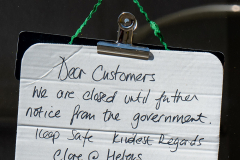 Dear Customers
We are closed until further
notice from the government.
Keep Safe Kindest Regards
Clare @ Helens